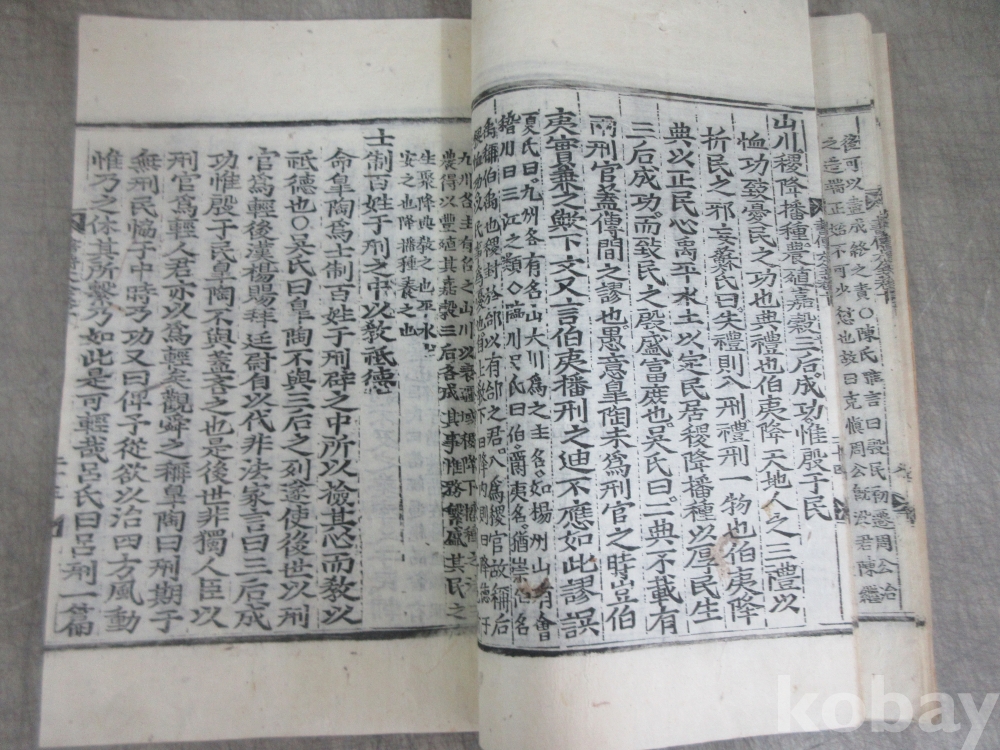 後可以盡成終之責○陳氏雅言曰殷民初遷周公治
之造端正始不可少怠也故曰克愼周公旣沒君陳繼
山川稷降播種農殖嘉穀三后成功惟殷于民
恤功致憂民之功也典禮也伯夷降天地人之三禮以
折民之邪妄蘇氏曰失禮則入刑禮刑一物也伯夷降
典以正民心禹平水土以定民居稷降播種以厚民生
三后成功而致民之殷盛富庶也吳氏曰二典不載有
兩刑官蓋傳聞之謬也愚意皐陶未爲刑官之時豈伯
夷實兼之歟下文又言伯夷播刑之迪不應如此謬誤
夏氏曰九州各有名山大川爲之主名如揚州山有會
稽川曰三江之類○臨川吳氏曰伯爵夷名猶崇伯名
禹稱伯禹也稷封於邰以有邰之君入爲稷官故稱后
九州各主有名之山川以表疆域稷降下播種之
農得以豐殖其嘉穀三后各成其事惟務繁盛其民之
生聚降典敎之也平水土
安之也降播種養之也
士制百姓于刑之中以敎祗德
命皐陶爲士制百姓于刑辟之中所以檢其心而敎以
祗德也○吳氏曰皐陶不與三后之列遂使後世以刑
官爲輕後漢楊賜拜廷尉自以代非法家言曰三后成
功惟殷于民皐陶不與蓋吝之也是後世非獨人臣以
刑官爲輕人君亦以爲輕矣觀舜之稱皐陶曰刑期于
無刑民協于中時乃功又曰俾予從欲以治四方風動
惟乃之休其所繫乃如此是可輕哉呂氏曰呂刑一篇
kobay